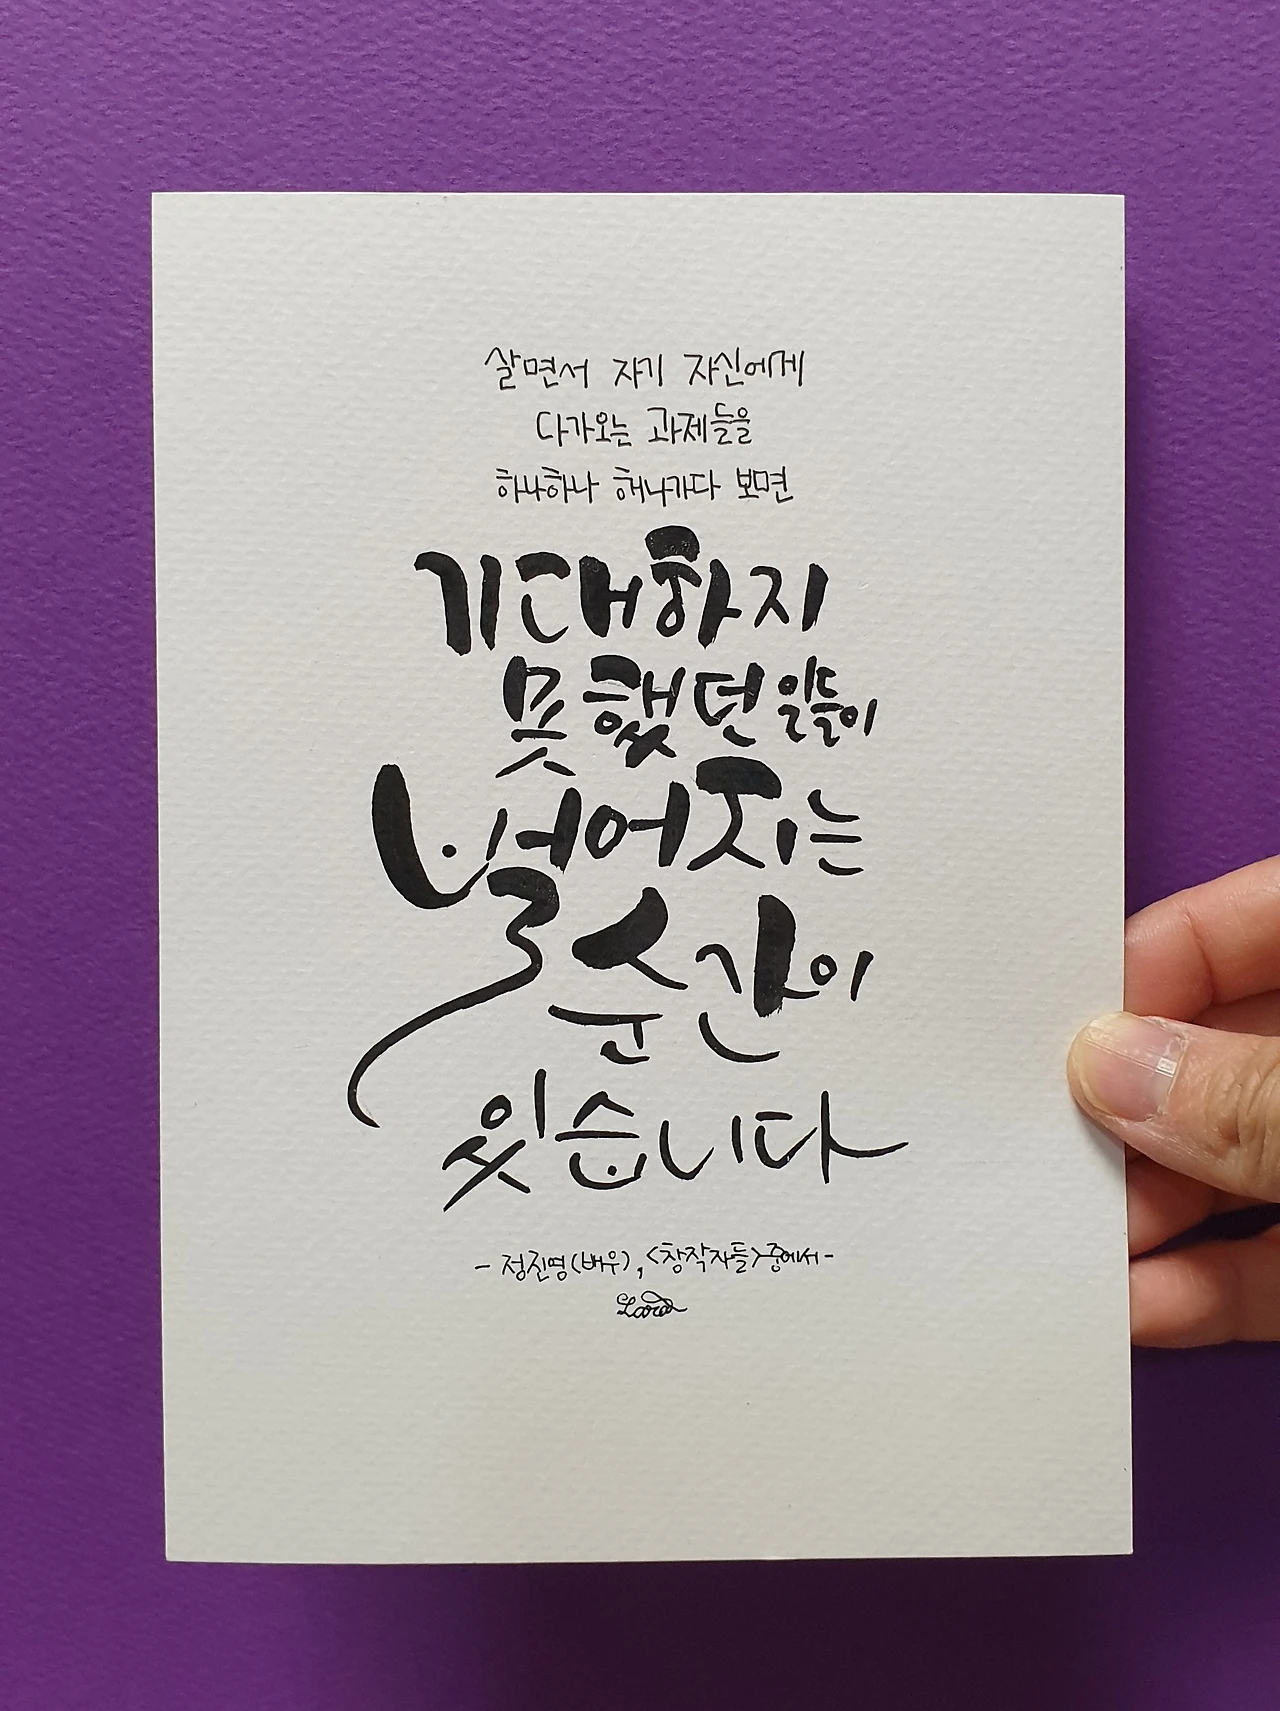 살면서 자기 자신에게
다가오는 과제들을
하나하나 해나가다 보면
기대하지
못했던 일들이
벌어지는
순간이
있습니다
- 정진영(배우), <창작자들>중에서-
Lara